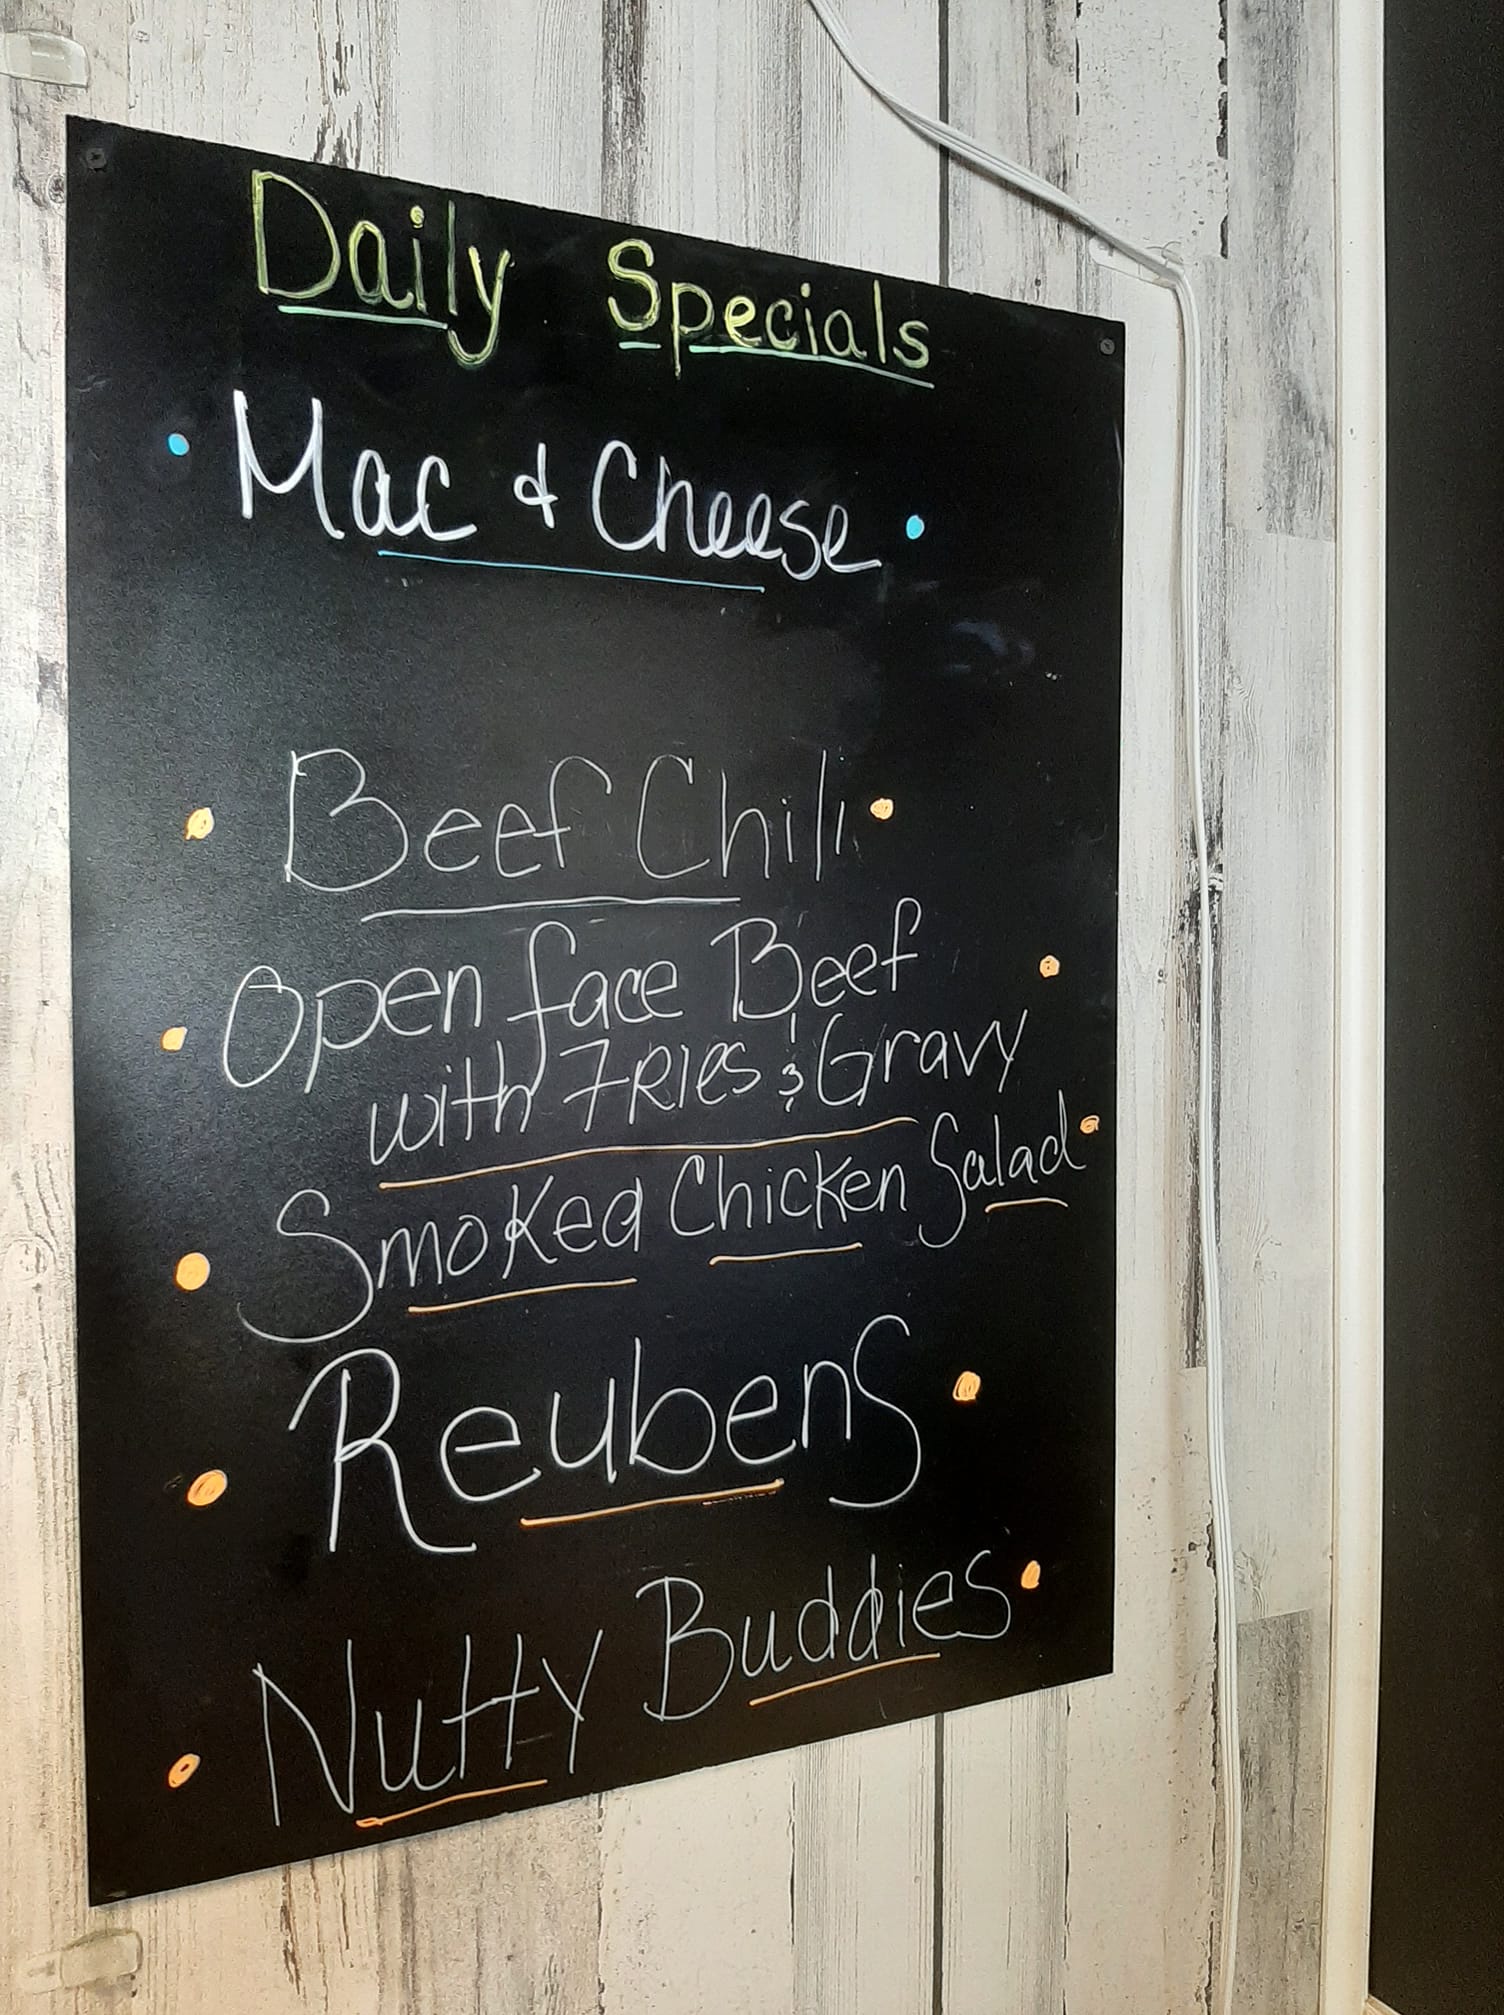 Daily Specials
Mac & Cheese
Beef Chili
Open face Beef
with FRIES & Gravy
Smoked Chicken Salad
Reubens
Nutty Buddies